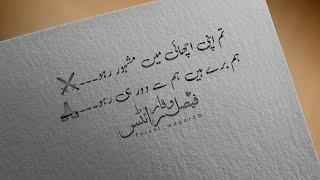 تم اپنی اچھائی میں مشہور رہو۔۔۔۔
ہم برے ہیں ہم سے دور ہی رہو۔۔۔۔
فیصل وقار
ائٹس